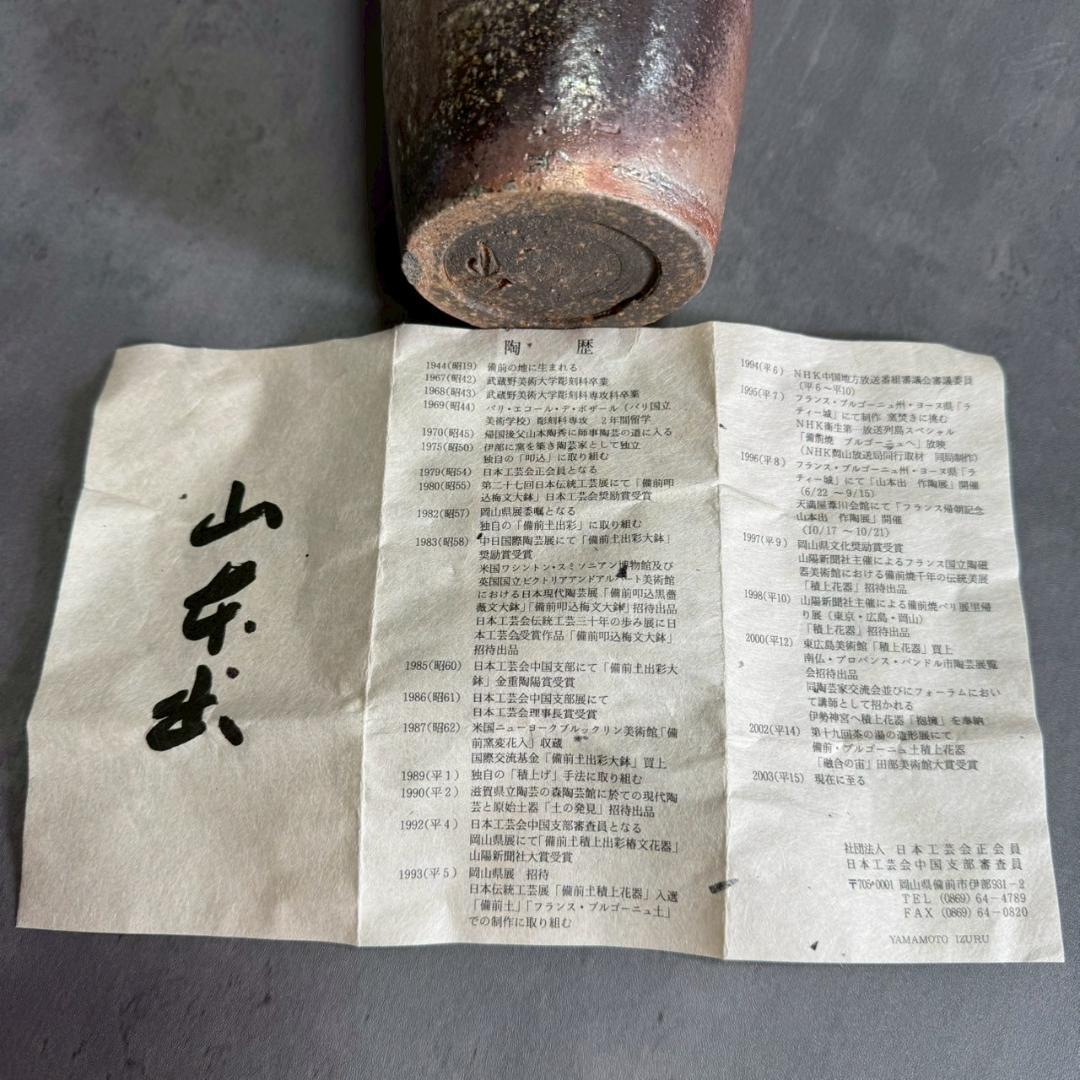 山本出
陶歴
1944(昭19) 備前の地に生まれる
1967(昭42) 武蔵野美術大学彫刻科卒業
1968(昭43) 武蔵野美術大学彫刻科専攻科卒業
1969(昭44) パリ・エコール・デ・ボザール（パリ国立
美術学校）彫刻科専攻 2年間留学
1970(昭45) 帰国後父山本陶秀に師事陶芸の道に入る
1975(昭50) 伊部に窯を築き陶芸家として独立
独自の「叩込」に取り組む
1979(昭54) 日本工芸会正会員となる
1980(昭55) 第二十七回日本伝統工芸展にて「備前叩
込梅文大鉢」日本工芸会奨励賞受賞
1982(昭57) 岡山県展委嘱となる
独自の「備前土出彩」に取り組む
1983(昭58) 中日国際陶芸展にて「備前土出彩大鉢」
奨励賞受賞
米国ワシントン・スミソニアン博物館及び
英国国立ビクトリアアンドアルバート美術館
における日本現代陶芸展「備前叩込黒薔
薇文大鉢」「備前叩込梅文大鉢」招待出品
日本工芸会伝統工芸三十年の歩み展に日
本工芸会受賞作品「備前叩込梅文大鉢」
招待出品
1985(昭60) 日本工芸会中国支部にて「備前土出彩大
鉢」金重陶陽賞受賞
1986(昭61) 日本工芸会中国支部展にて
日本工芸会理事長賞受賞
1987(昭62) 米国ニューヨークブルックリン美術館「備
前窯変花入」収蔵
国際交流基金「備前土出彩大鉢」買上
1989(平1) 独自の「積上げ」手法に取り組む
1990(平2) 滋賀県立陶芸の森陶芸館に於ての現代陶
芸と原始土器「土の発見」招待出品
1992(平4) 日本工芸会中国支部審査員となる
岡山県展にて「備前土積上出彩椿文花器」
山陽新聞社大賞受賞
1993(平5) 岡山県展 招待
日本伝統工芸展「備前土積上花器」入選
「備前土」「フランス・ブルゴーニュ土」
での制作に取り組む
1994(平6) NHK中国地方放送番組審議会審議委員
（平6～平10）
1995(平7) フランス・ブルゴーニュ州・ヨーヌ県「ラ
ティー城」にて制作 窯焚きに挑む
NHK衛生第一放送列島スペシャル
「備前焼 ブルゴーニュへ」放映
（NHK岡山放送局同行取材 同局制作）
1996(平8) フランス・ブルゴーニュ州・ヨーヌ県「ラ
ティー城」にて「山本出 作陶展」開催
（6/22 ～9/15）
天満屋葦川会館にて「フランス帰朝記念
山本出 作陶展」開催
（10/17 ～10/21）
1997(平9) 岡山県文化奨励賞受賞
山陽新聞社主催によるフランス国立陶磁
器美術館における備前焼千年の伝統美展
「積上花器」招待出品
1998(平10) 山陽新聞社主催による備前焼パリ展里帰
り展（東京・広島・岡山）
「積上花器」招待出品
2000(平12) 東広島美術館「積上花器」買上
南仏・プロバンス・バンドル市陶芸展覧
会招待出品
同陶芸家交流会並びにフォーラムにおい
て講師として招かれる
伊勢神宮へ積上花器「抱擁」を奉納
2002(平14) 第十九回茶の湯の造形展にて
備前・ブルゴーニュ土積上花器
「融合の宙」田部美術館大賞受賞
2003(平15) 現在に至る
社団法人 日本工芸会正会員
日本工芸会中国支部審査員
〒705-0001 岡山県備前市伊部931-2
TEL (0869) 64-4789
FAX (0869) 64-0820
YAMAMOTO IZURU